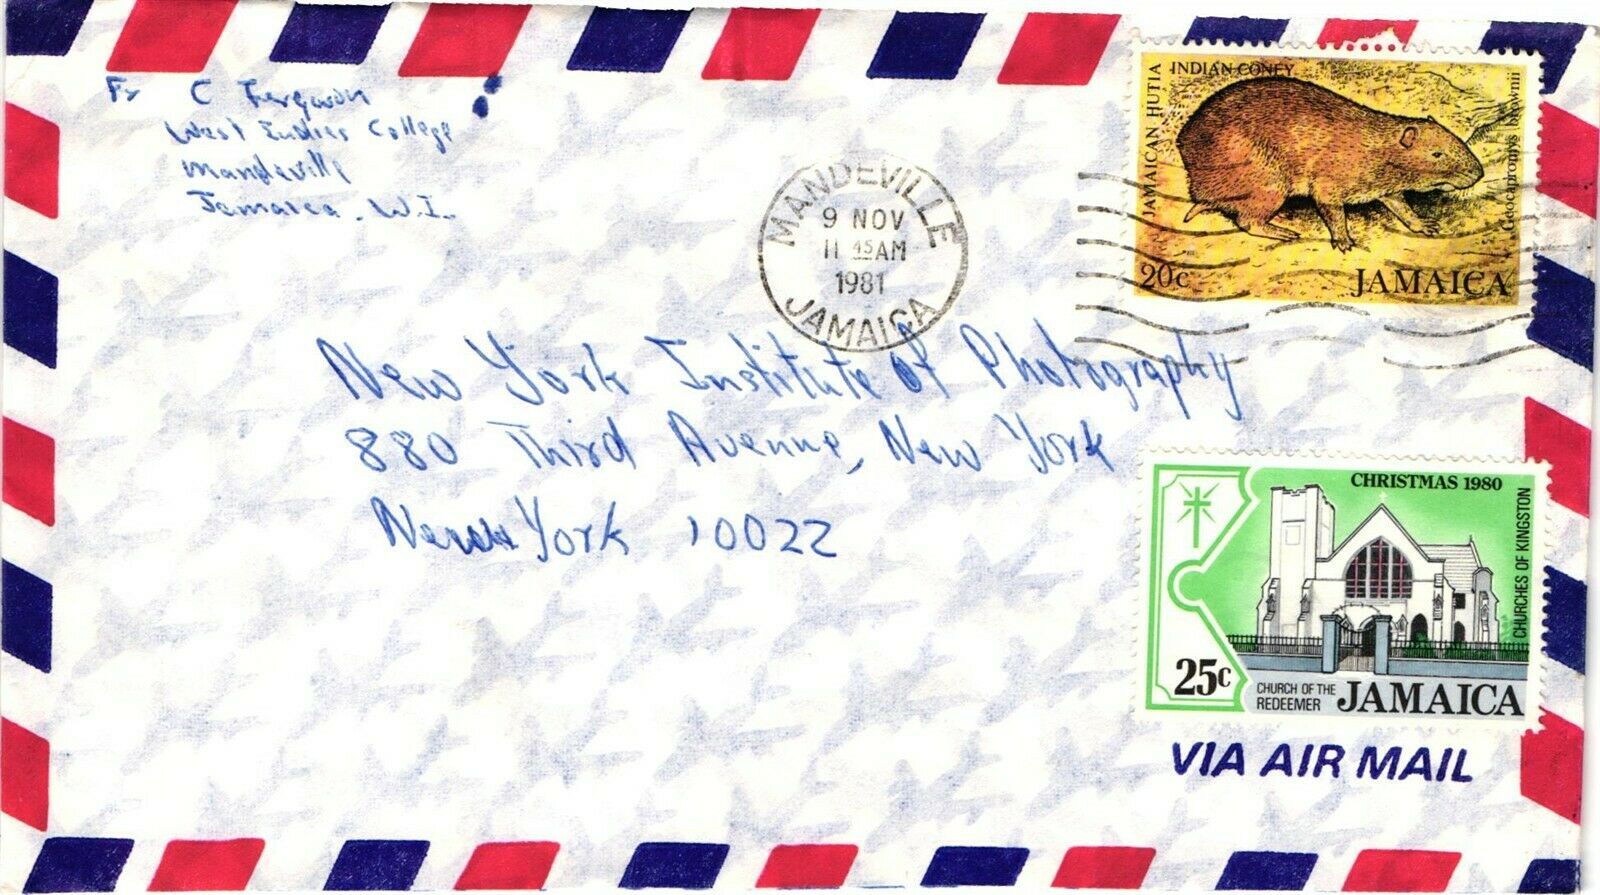 Fr C Ferguson
West Indies College
Mandeville
Jamaica. W.I.
MANDEVILLE
9 NOV
11 45 AM
1981
JAMAICA
JAMAICAN HUTIA
INDIAN CONEY
Geocapromys brownii
20c
JAMAICA
New York Institute of Photography
880 Third Avenue, New York
New York 10022
CHRISTMAS 1980
CHURCHES OF KINGSTON
25c
CHURCH OF THE
REDEEMER
JAMAICA
VIA AIR MAIL